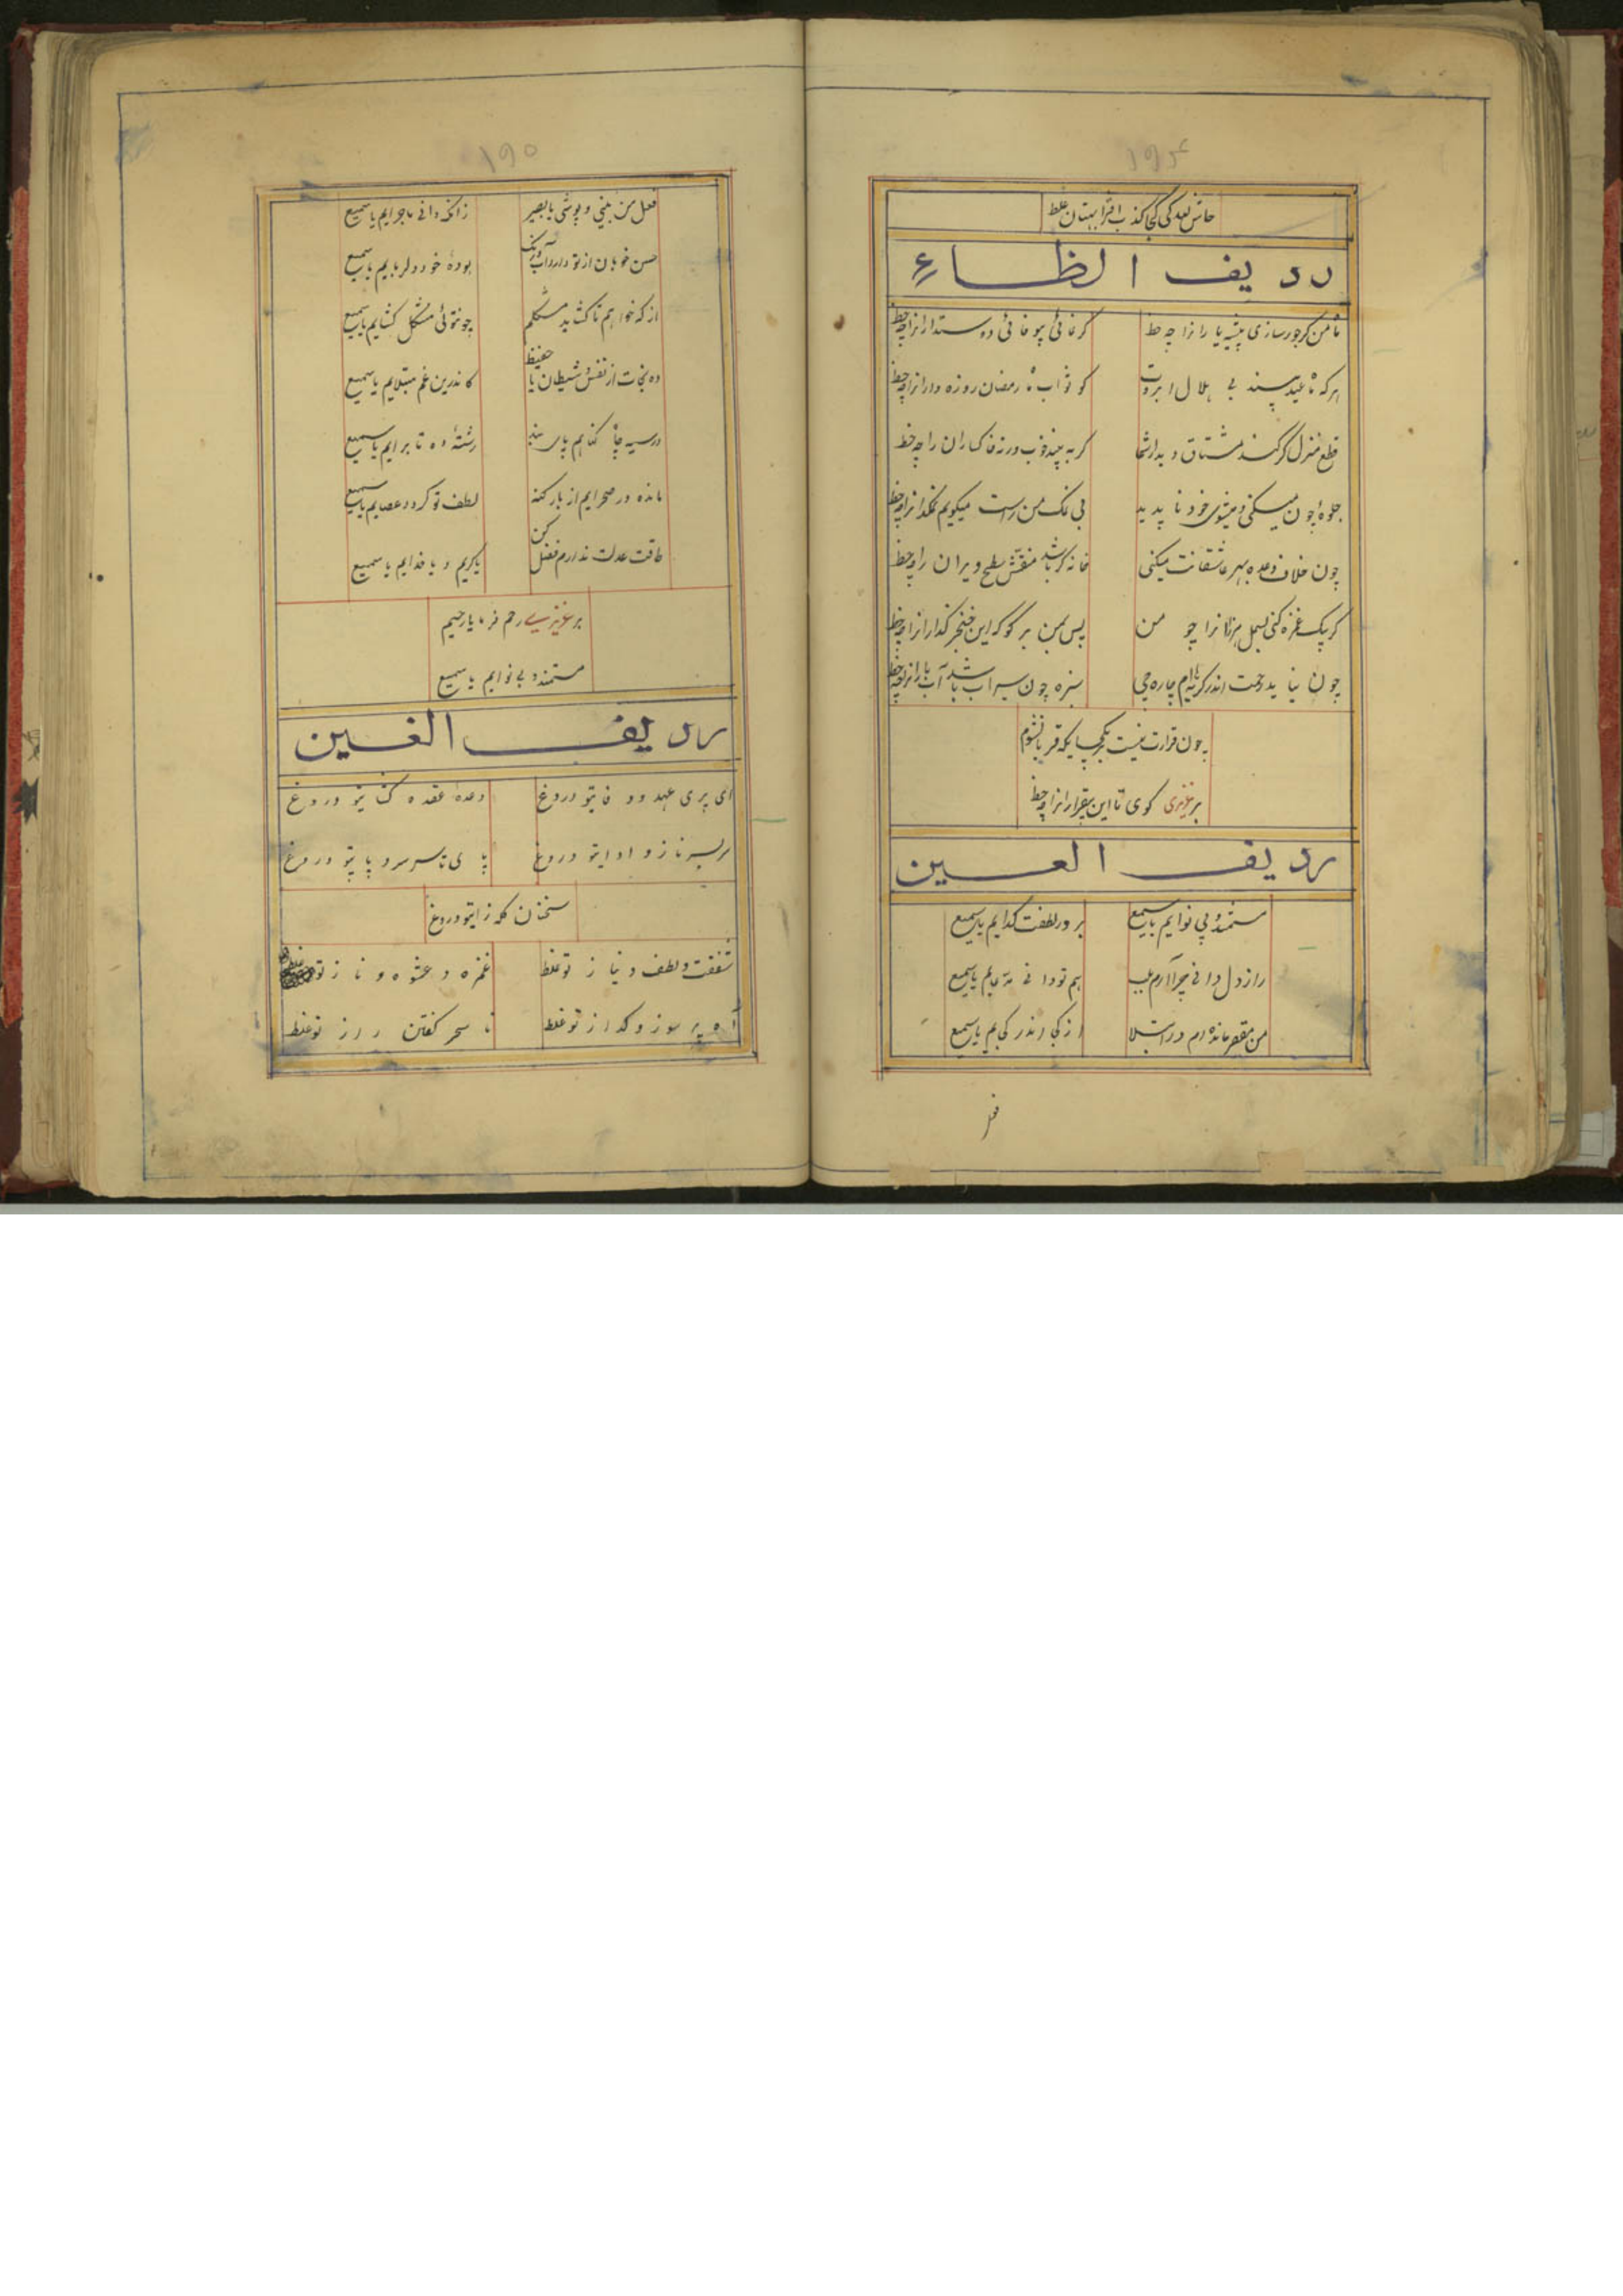 ۱۹۴
حاش لعد کی کجا کذب افترا بهتان غلط
ردیف الظاء
با من گر جور سازی پیشه یا را نرا چه حظ
گر غائی پیو فائی دوستدارانرا چه حظ
هرکه تا عید پسند بی هلال ابروت
کو ثواب ما رمضان روزه دارانرا چه حظ
قطع منزل گر کنند مشتاق دیدار شما
گر نه بیند خوب ورنه خاکساران را چه حظ
جلوه چون میکنی و میشوی خود ناپدید
بی نمک من راست میگویم نمکدانرا چه حظ
چون خلاف وعده بهر عاشقانت میکنی
خانه گر باشد منقش سطح ویران را چه حظ
گر بیک غمزه کنی بسمل هزارانرا چو من
پس بمن بر گو که این خنجر گذارانرا چه حظ
چون نیاید رحمت اندر گریه ام چاره چی
سبزه چون سیراب باشد آب بارانرا چه حظ
چون قرارت نیست بر یکجا یکه قربانشوم
بر عزیزی گوی تا این بیقرارانرا چه حظ
ردیف العین
مستمند و بی نوایم یا سمیع
بر در لطفت گدایم یا سمیع
راز دل دانی چرا آرم بلب
هم تو دانی مدعایم یا سمیع
من مقصر مانده ام در ابتلا
از کجا اندر کجایم یا سمیع
فعل
۱۹۵
فعل من بینی و پوشی یا بصیر
زانکه دانی ماجرایم یا سمیع
حسن خوبان از تو دارد آب و رنگ
بوده خود دلربایم یا سمیع
از که خواهم تا گشاید مشکلم
چونتوئی مشکل گشایم یا سمیع
ده نجات از نفس و شیطان یا حفیظ
کاندرین غم مبتلایم یا سمیع
در سیه چاه گناهم پای بند
رشته ده تا برایم یا سمیع
مانده در صحرایم از بار گنه
لطف تو گردد عصایم یا سمیع
طاقت عدلت ندارم فضل کن
یا کریم و یا خدایم یا سمیع
بر عزیزی رحم فرما یا رحیم
مستمند و بی نوایم یا سمیع
ردیف الغین
ای پری عهد و وفایتو دروغ
وعده عقده گشایتو دروغ
سربسر ناز و ادایتو دروغ
پای تا سر سر و پایتو دروغ
سخنان گله زایتو دروغ
شفقت و لطف و نیاز تو غلط
غمزه و عشوه و ناز تو غلط
آه پر سوز و گداز تو غلط
تا سحر گفتن راز تو غلط